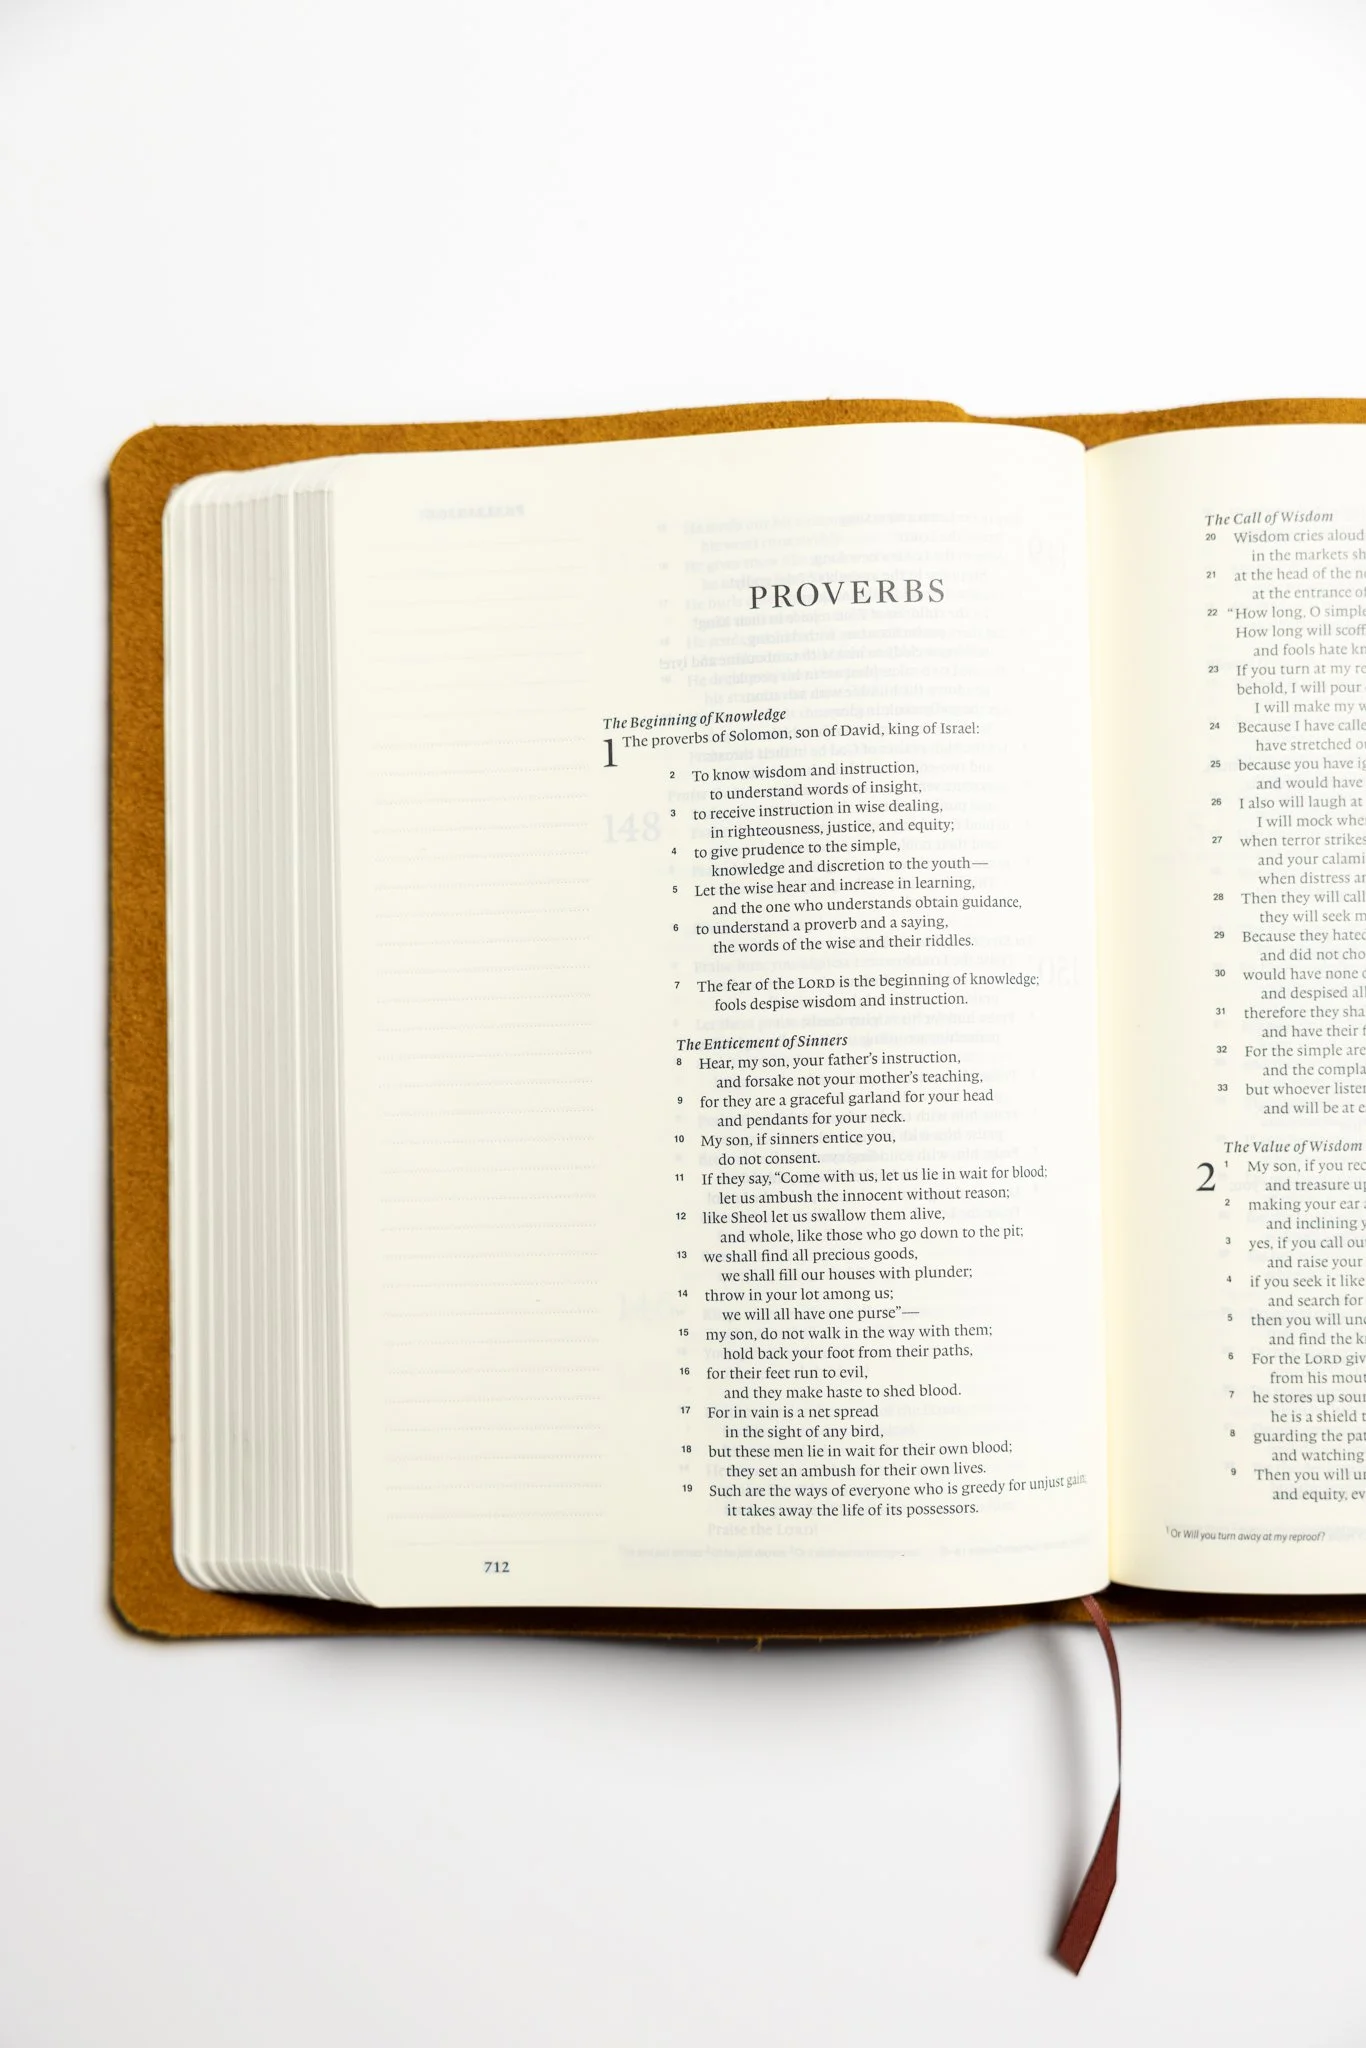 PROVERBS
The Beginning of Knowledge
1 The proverbs of Solomon, son of David, king of Israel:
2 To know wisdom and instruction,
to understand words of insight,
3 to receive instruction in wise dealing,
in righteousness, justice, and equity;
4 to give prudence to the simple,
knowledge and discretion to the youth—
5 Let the wise hear and increase in learning,
and the one who understands obtain guidance,
6 to understand a proverb and a saying,
the words of the wise and their riddles.
7 The fear of the LORD is the beginning of knowledge;
fools despise wisdom and instruction.
The Enticement of Sinners
8 Hear, my son, your father’s instruction,
and forsake not your mother’s teaching,
9 for they are a graceful garland for your head
and pendants for your neck.
10 My son, if sinners entice you,
do not consent.
11 If they say, “Come with us, let us lie in wait for blood;
let us ambush the innocent without reason;
12 like Sheol let us swallow them alive,
and whole, like those who go down to the pit;
13 we shall find all precious goods,
we shall fill our houses with plunder;
14 throw in your lot among us;
we will all have one purse”—
15 my son, do not walk in the way with them;
hold back your foot from their paths,
16 for their feet run to evil,
and they make haste to shed blood.
17 For in vain is a net spread
in the sight of any bird,
18 but these men lie in wait for their own blood;
they set an ambush for their own lives.
19 Such are the ways of everyone who is greedy for unjust gain;
it takes away the life of its possessors.
712
The Call of Wisdom
20 Wisdom cries aloud
in the markets
21 at the head of the
at the entrance of
22 “How long, O simple
How long will
and fools hate
23 If you turn at my
behold, I will pour
I will make my
24 Because I have
have stretched
25 because you have
and would have
26 I also will laugh at
I will mock
27 when terror strikes
and your
when distress
28 Then they will call
they will seek
29 Because they hated
and did not
30 would have none
and despised
31 therefore they
and have their
32 For the simple are
and the
33 but whoever
and will be at
The Value of Wisdom
2 1 My son, if you
and treasure up
2 making your ear
and inclining
3 yes, if you call out
and raise your
4 if you seek it like
and search for
5 then you will
and find the
6 For the LORD
from his
7 he stores up
he is a shield
8 guarding the
and watching
9 Then you will
and equity,
1 Or Will you turn away at my reproof?